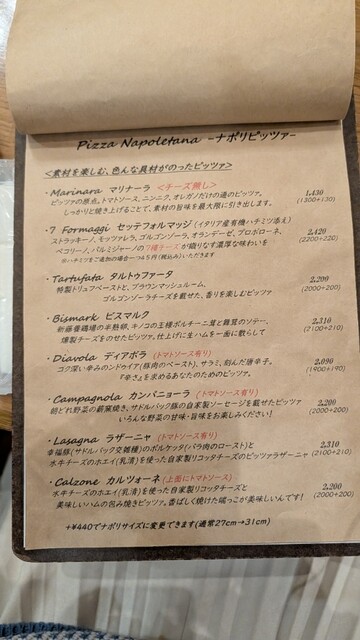 Pizza Napoletana -ナポリピッツァ-
<素材を楽しむ、色んな具材がのったピッツァ>
・Marinara マリナーラ <チーズ無し> 1,430
ピッツァの原点。トマトソース、ニンニク、オレガノだけの迄のピッツァ。 (1300+130)
しっかりと焼き上げることで、素材の旨味を最大限に引き出します。
・7 Formaggi セッテフォルマッジ (イタリア産有機ハチミツ添え) 2,420
ストラッキーノ、モッツァレラ、ゴルゴンゾーラ、オランデーゼ、プロボローネ、 (2200+220)
ペコリーノ、パルミジャーノの7種チーズが織りなす濃厚な味わいを
※ハチミツをご追加の場合一つ45円(税込み)いただきます
・Tartufata タルトゥファータ 2,200
特製トリュフペーストと、ブラウンマッシュルーム、 (2000+200)
ゴルゴンゾーラチーズを載せた、香りを楽しむピッツァ
・Bismark ビスマルク 2,310
新藤養鶏場の半熟卵、キノコの王様ポルチーニ茸と舞茸のソテー、 (2100+210)
燻製チーズをのせたピッツァ。仕上げに生ハムを一面に散らして
・Diavola ディアボラ (トマトソース有り) 2,090
コク深い辛みのンドゥイア(豚肉のペースト)、サラミ、刻んだ唐辛子。 (1900+190)
『辛さ』を求めるあなたのためのピッツァ。
・Campagnola カンパニョーラ (トマトソース有り) 2,200
朝どれ野菜の薪窯焼き、サドルバック豚の自家製ソーセージを載せたピッツァ (2000+200)
いろんな野菜の甘味・旨味をお楽しみください!
・Lasagna ラザーニャ (トマトソース有り) 2,310
幸福豚(サドルバック交雑種)のポルケッタ(バラ肉のロースト)と (2100+210)
水牛チーズのホエイ(乳清)を使った自家製リコッタチーズのピッツァラザーニャ
・Calzone カルツォーネ (上面にトマトソース) 2,200
水牛チーズのホエイ(乳清)を使った自家製リコッタチーズと (2000+200)
美味しいハムの包み焼きピッツァ。香ばしく焼けた端っこが美味しいんです!
+¥440でナポリサイズに変更できます(通常27cm→31cm)